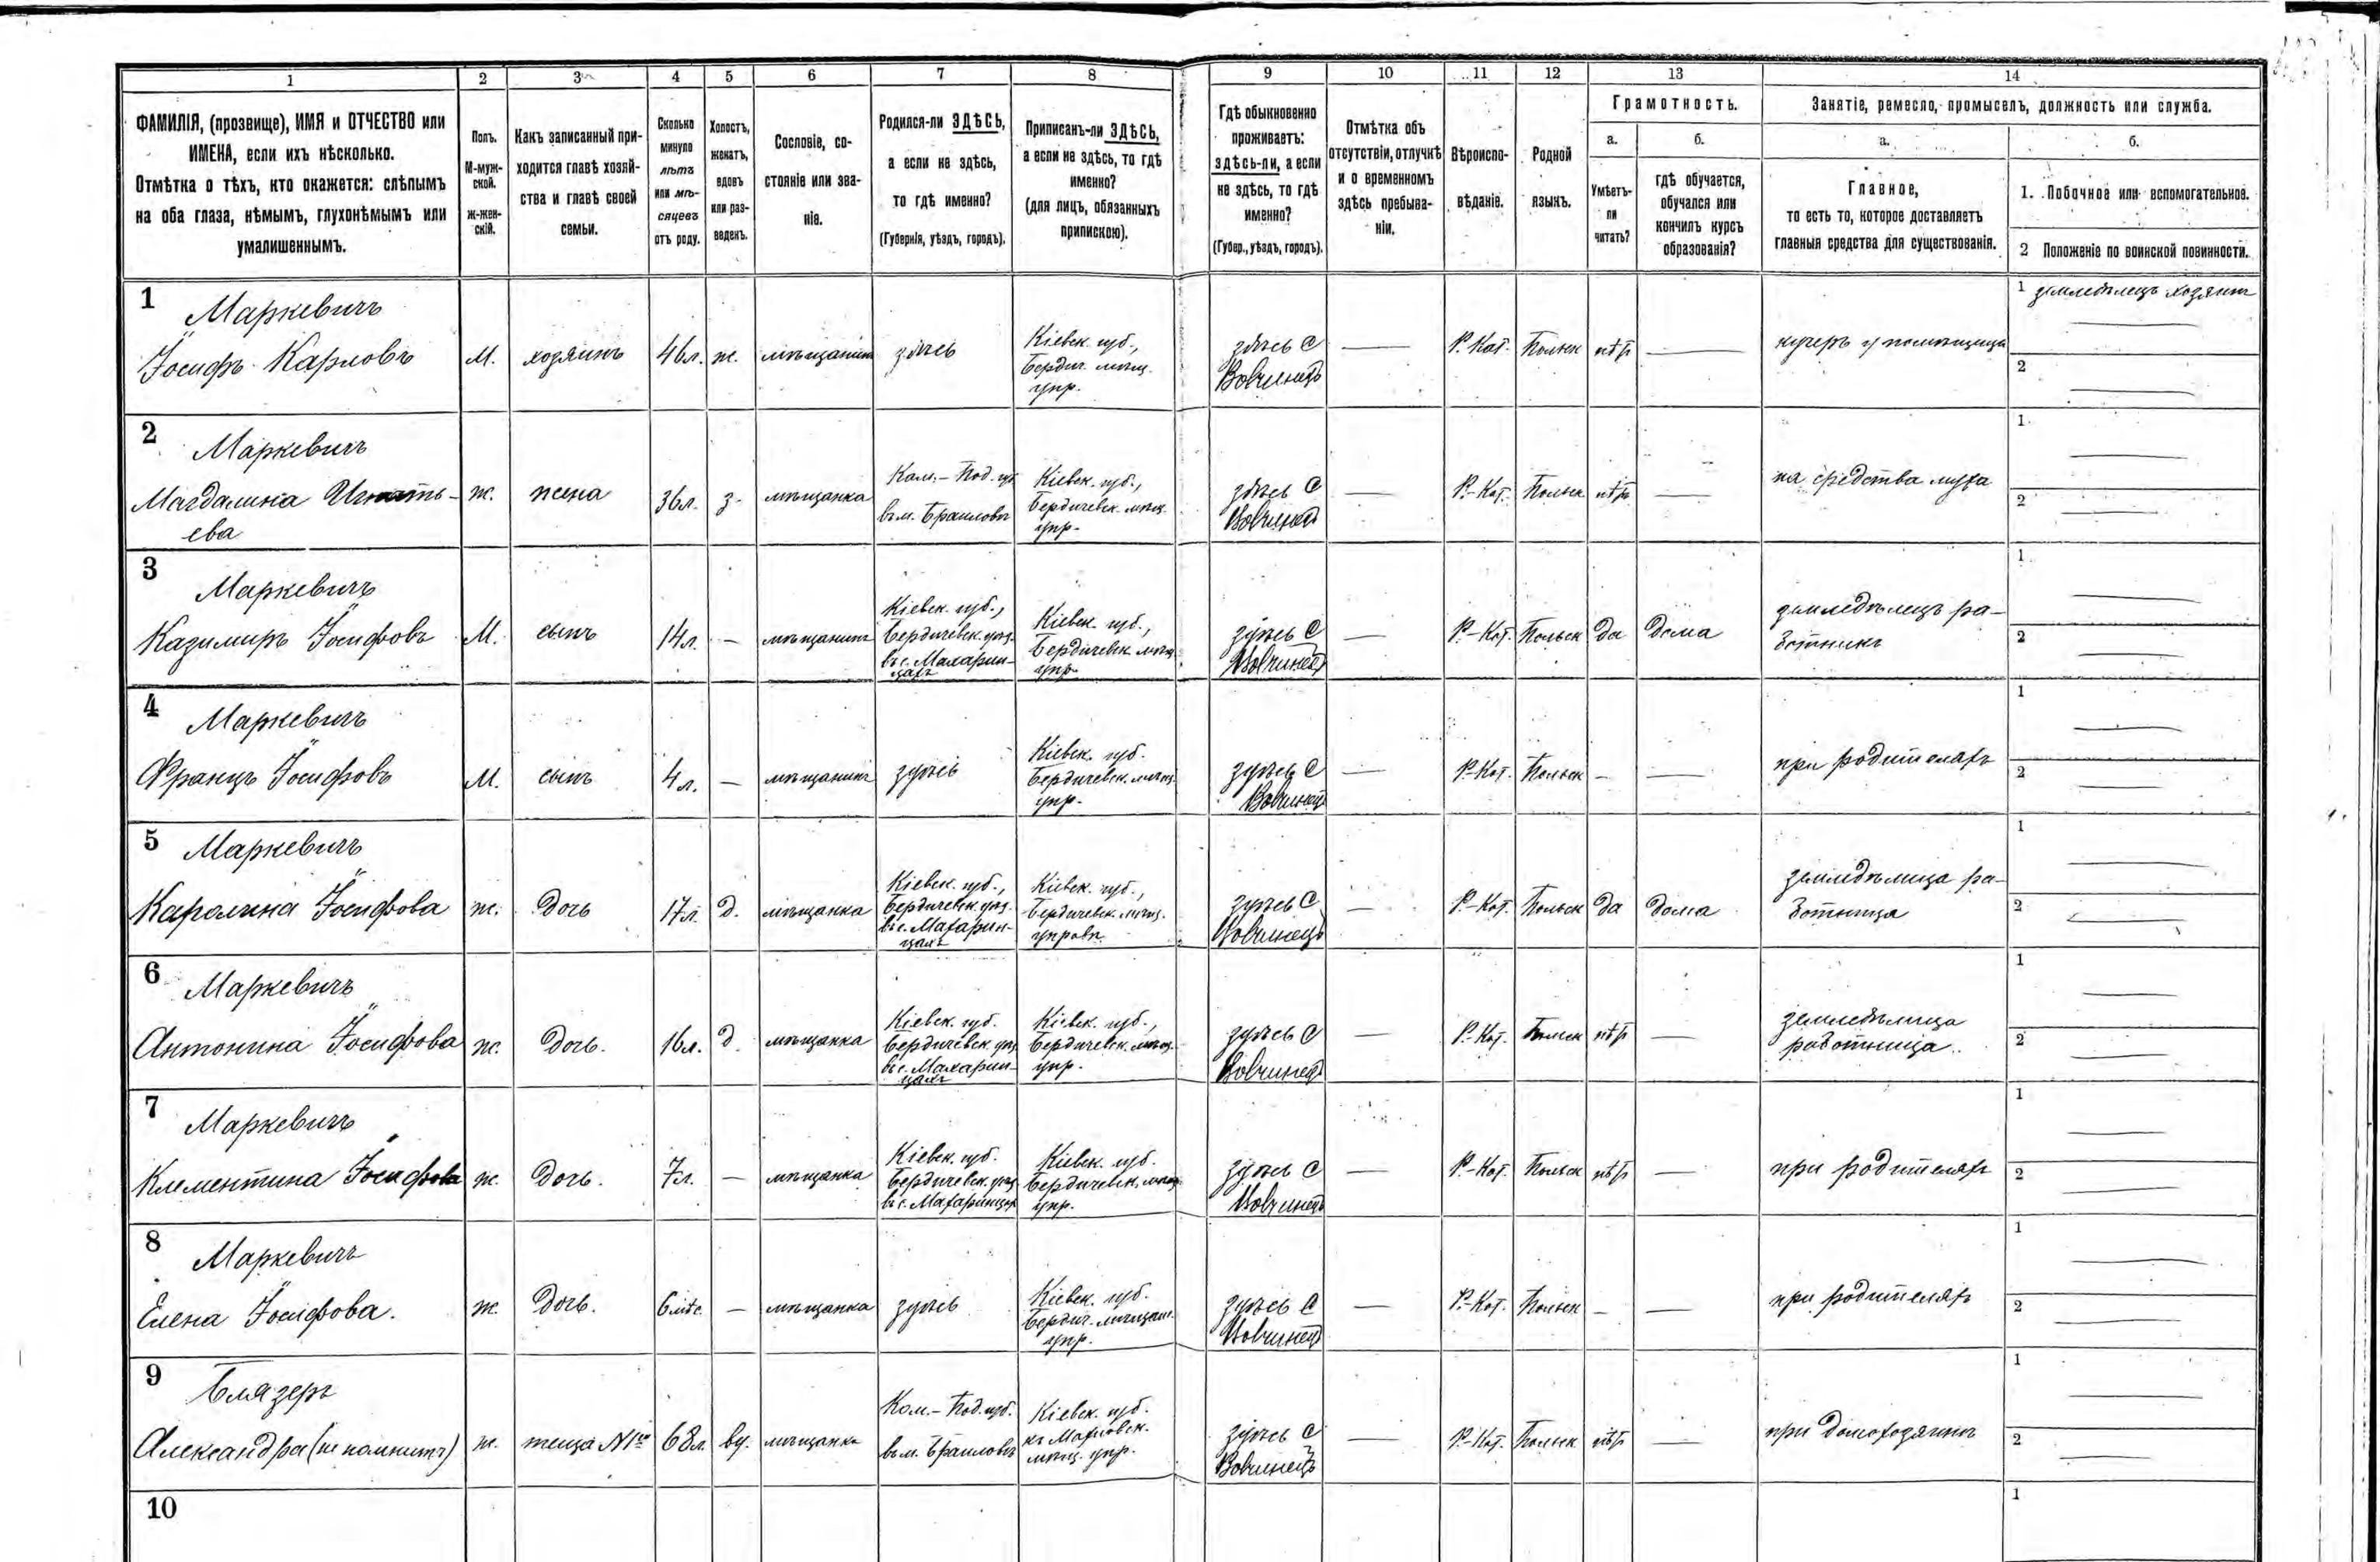 1 2 3 4 5 6 7 8 9 10 11 12 13 14
ФАМИЛІЯ, (прозвище), ИМЯ и ОТЧЕСТВО или
ИМЕНА, если ихъ нѣсколько.
Отмѣтка о тѣхъ, кто окажется: слѣпымъ
на оба глаза, нѣмымъ, глухонѣмымъ или
умалишеннымъ.
Полъ.
М-муж-
ской.
Ж-жен-
скій.
Какъ записанный при-
ходится главѣ хозяй-
ства и главѣ своей
семьи.
Сколько
минуло
лѣтъ
или мѣ-
сяцевъ
отъ роду.
Холостъ,
женатъ,
вдовъ
или раз-
веденъ.
Сословіе, со-
стояніе или зва-
ніе.
Родился-ли ЗДѢСЬ,
а если не здѣсь,
то гдѣ именно?
(Губернія, уѣздъ, городъ).
Приписанъ-ли ЗДѢСЬ,
а если не здѣсь, то гдѣ
именно?
(для лицъ, обязанныхъ
припискою).
Гдѣ обыкновенно
проживаетъ:
здѣсь-ли, а если
не здѣсь, то гдѣ
именно?
(Губер., уѣздъ, городъ).
Отмѣтка объ
отсутствіи, отлучкѣ
и о временномъ
здѣсь пребыва-
ніи.
Вѣроиспо-
вѣданіе.
Родной
языкъ.
Грамотность.
а.
Умѣетъ-
ли
читать?
б.
гдѣ обучается,
обучался или
кончилъ курсъ
образованія?
Занятіе, ремесло, промыселъ, должность или служба.
а.
Главное,
то есть то, которое доставляетъ
главныя средства для существованія.
б.
1. Побочное или вспомогательное.
2 Положеніе по воинской повинности.
1 Маркевичъ
Іосифъ Карловъ
М.
хозяинъ
46 л.
ж.
мѣщанинъ
здѣсь
Кіевск. губ.,
Бердич. мѣщ.
упр.
здѣсь С
Вовчинецъ
Р.-Кат.
Польск
нѣтъ
кучеръ у помѣщица
1 земледѣлецъ хозяинъ
2
2 Маркевичъ
Магдалина Игнать-
ева
ж.
жена
36 л.
з.
мѣщанка
Кам.-Под. губ.
въ м. Браиловѣ
Кіевск. губ.,
Бердичевск. мѣщ.
упр.
здѣсь С
Вовчинецъ
Р.-Кат.
Польск
нѣтъ
на средства мужа
1
2
3 Маркевичъ
Казимиръ Іосифовъ
М.
сынъ
14 л.
мѣщанинъ
Кіевск. губ.,
Бердичевск. уѣзд.
въ с. Махарин-
цахъ
Кіевск. губ.,
Бердичевск. мѣщ.
упр.
здѣсь С
Вовчинецъ
Р.-Кат.
Польск
да
дома
земледѣлецъ ра-
ботникъ
1
2
4 Маркевичъ
Францъ Іосифовъ
М.
сынъ
4 л.
мѣщанинъ
здѣсь
Кіевск. губ.
Бердичевск. мѣщ.
упр.
здѣсь С
Вовчинецъ
Р.-Кат.
Польск
при родителяхъ
1
2
5 Маркевичъ
Каролина Іосифова
ж.
дочь
17 л.
д.
мѣщанка
Кіевск. губ.,
Бердичевск. уѣзд.
въ с. Махарин-
цахъ
Кіевск. губ.,
Бердичевск. мѣщ.
управ.
здѣсь С
Вовчинецъ
Р.-Кат.
Польск
да
дома
земледѣлица ра-
ботница
1
2
6 Маркевичъ
Антонина Іосифова
ж.
дочь.
16 л.
д.
мѣщанка
Кіевск. губ.
Бердичевск. уѣзд.
въ с. Махарин-
цахъ
Кіевск. губ.,
Бердичевск. мѣщ.
упр.
здѣсь С
Вовчинецъ
Р.-Кат.
Польск
нѣтъ
земледѣлица
работница.
1
2
7 Маркевичъ
Клементина Іосифова
ж.
дочь.
7 л.
мѣщанка
Кіевск. губ.
Бердичевск. уѣзд.
въ с. Махаринцахъ
Кіевск. губ.
Бердичевск. мѣщ.
упр.
здѣсь С
Вовчинецъ
Р.-Кат.
Польск
нѣтъ
при родителяхъ
1
2
8 Маркевичъ
Елена Іосифова.
ж.
дочь.
6 мѣс.
мѣщанка
здѣсь
Кіевск. губ.
Бердич. мѣщанс.
упр.
здѣсь С
Вовчинецъ
Р.-Кат.
Польск
при родителяхъ
1
2
9 Блязеръ
Александра (не помнитъ)
ж.
теща №1го
68 л.
вд.
мѣщанка
Кам.-Под. губ.
въ м. Браиловѣ
Кіевск. губ.
мѣщ. упр.
здѣсь С
Вовчинецъ
Р.-Кат.
Польск
нѣтъ
при домохозяинѣ
1
2
10
1